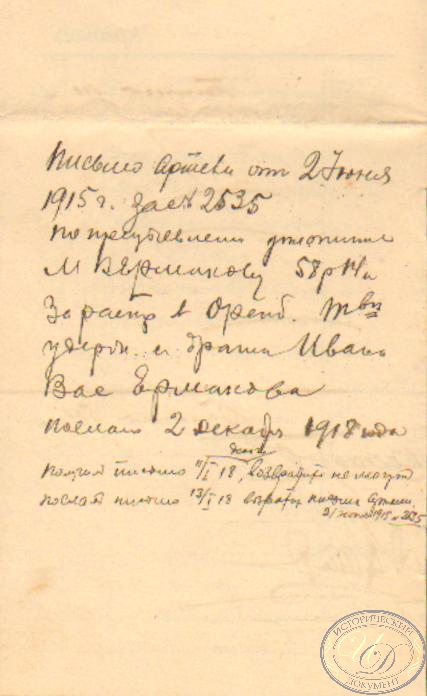 Письмо Артели от 2 Июня
1915 г. за № 2535
по предъявлении уплатить
М В Ермакову 58 р
За в Оренб. Т
удерж. и брата Ивана
Вас Ермакова
послано 2 декабр 1918 года
получил письмо 11/I 18, возвратить не могут
послал письмо 13/I 18 письма Артели
2/июня 1915 № 2535
ИСТОРИЧЕСКИЙ
ДОКУМЕНТ